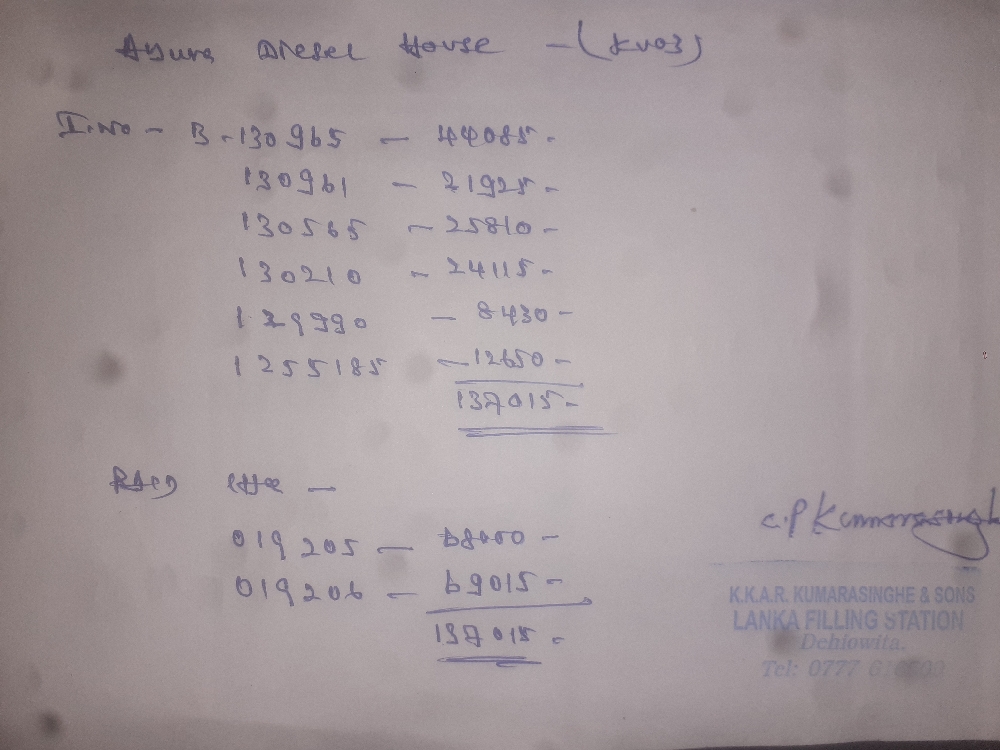 Asura Diesel House - (KV03)
I.No - B-130965 - 44085-
130961 - 21925-
130565 - 25810-
130210 - 24115-
129990 - 8430-
1255185 - 12650-
137015-
019205 - 68000-
019206 - 69015-
137015-
C.P Kumarasingh
K.K.A.R. KUMARASINGHE & SONS
LANKA FILLING STATION
Dehiowita.
Tel: 0777